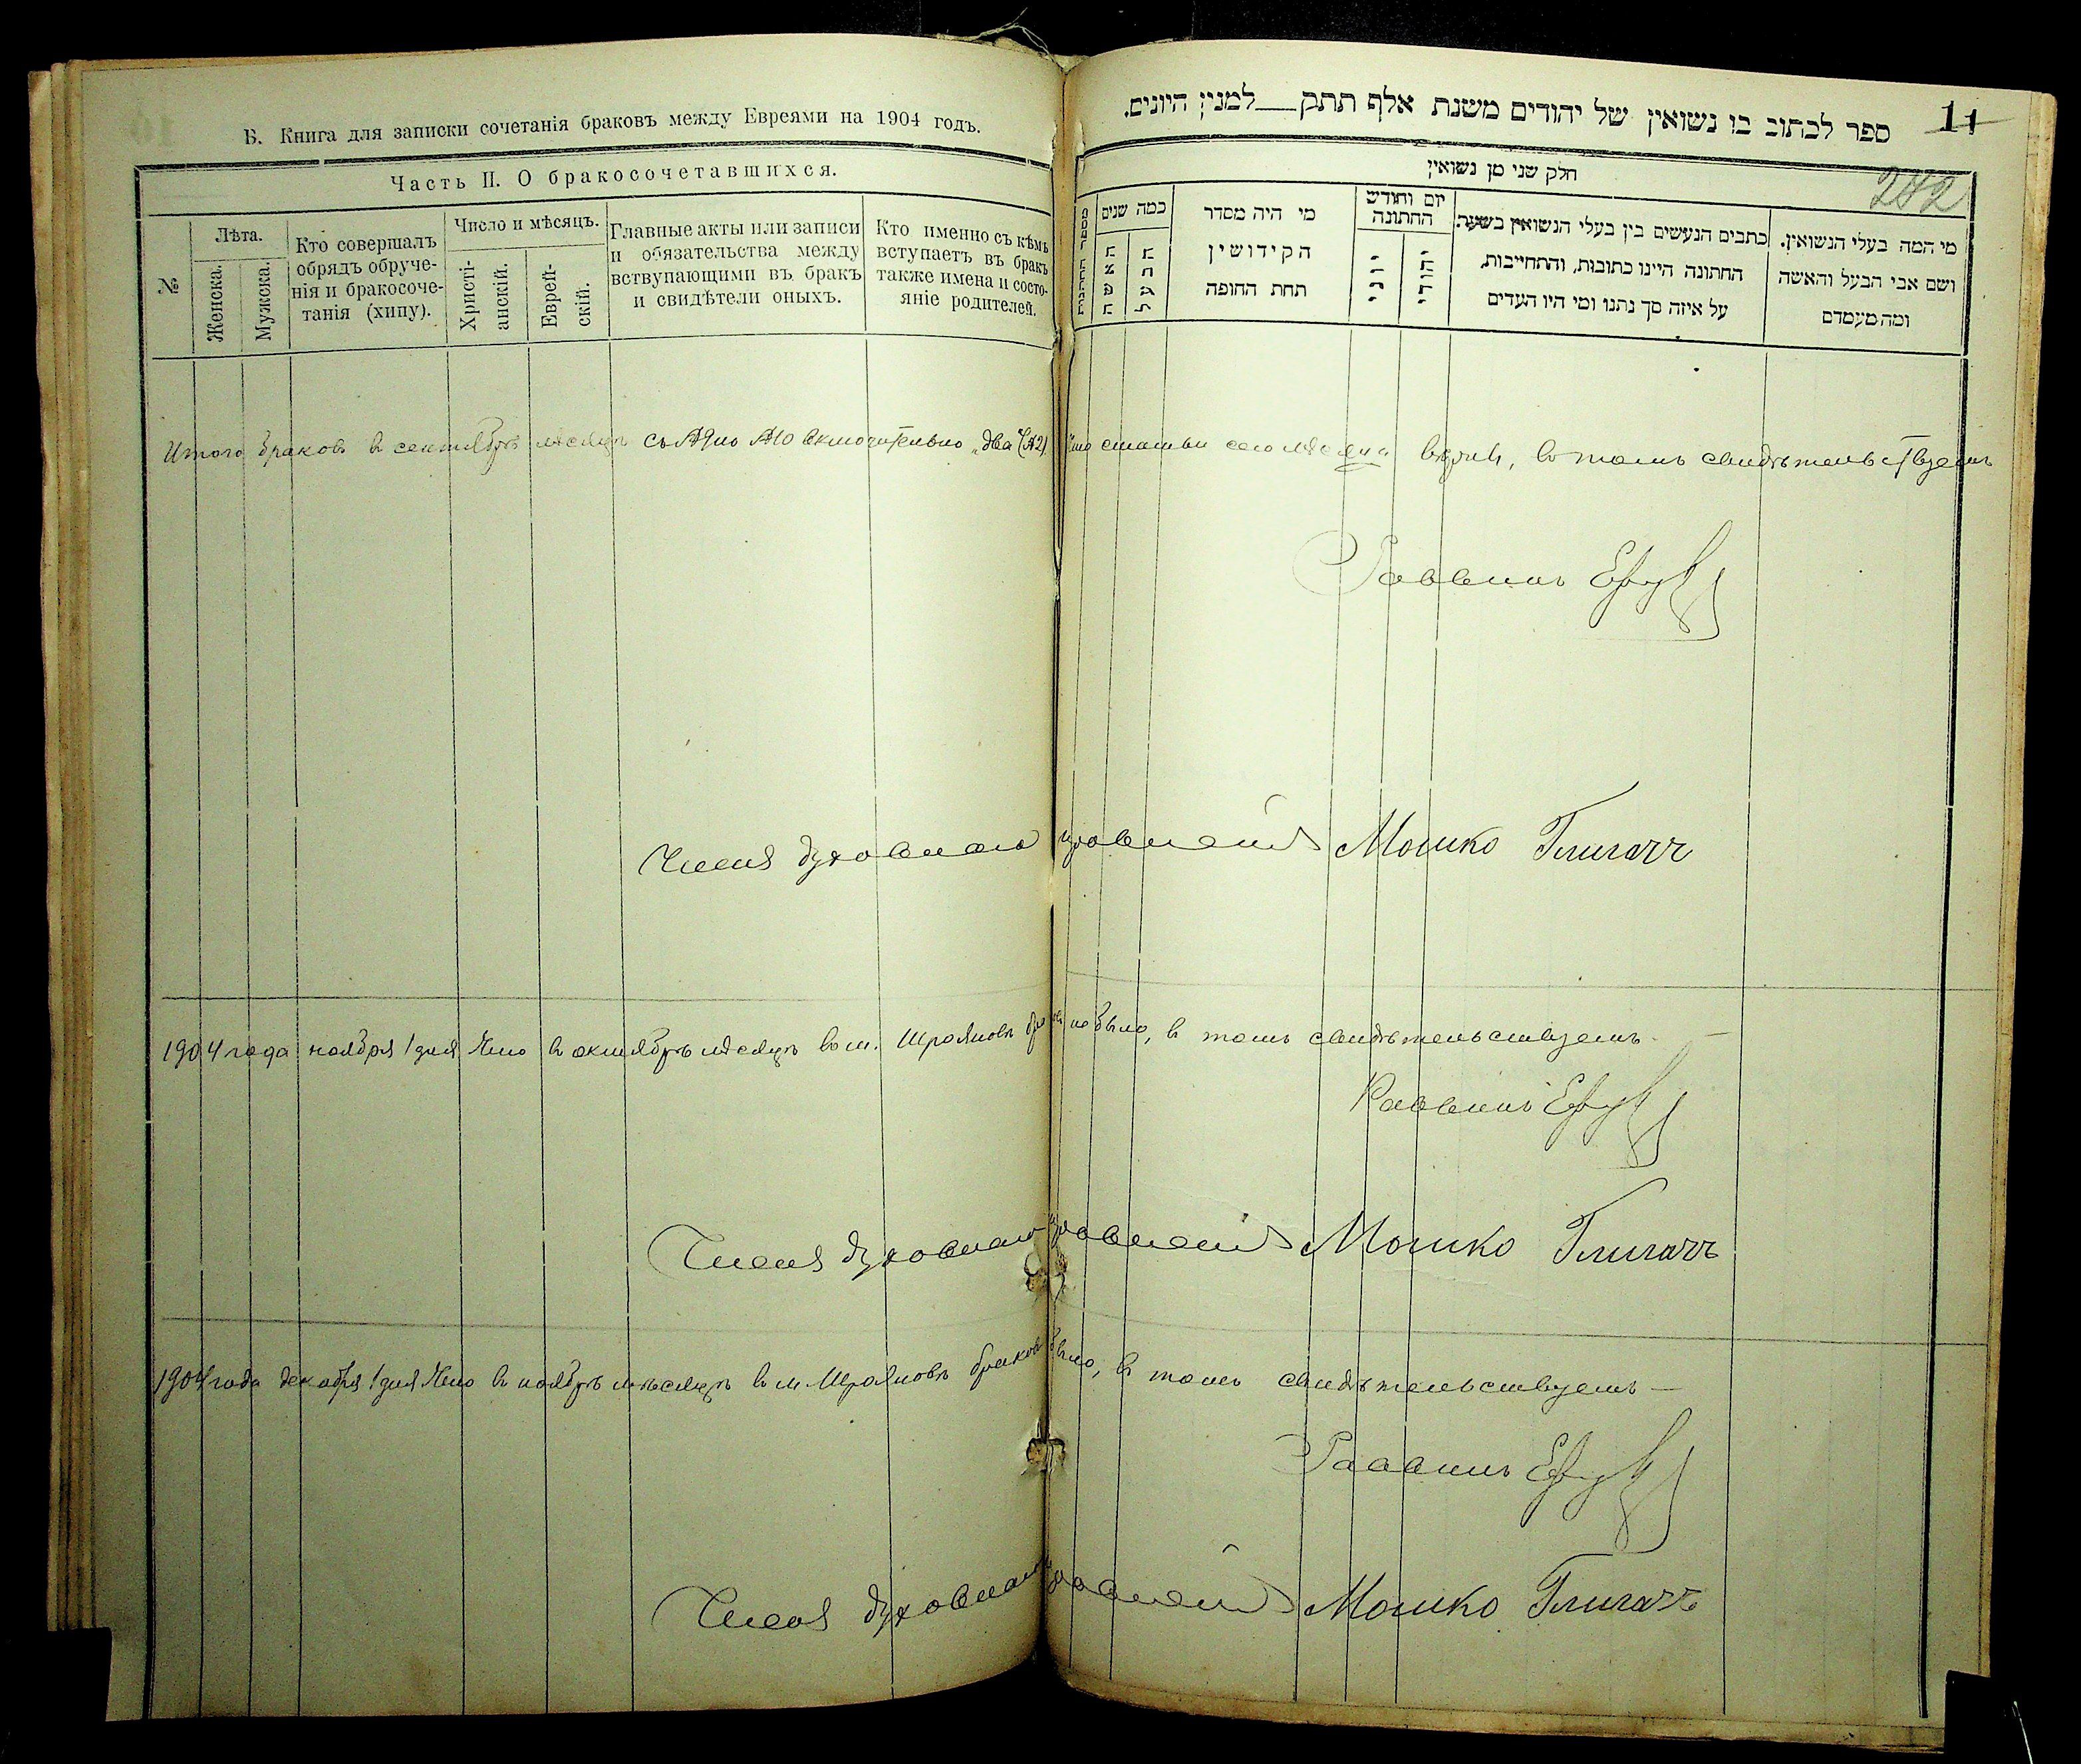 Б. Книга для записки сочетанія браковъ между Евреями на 1904 годъ.
Часть II. О бракосочетавшихся.
№
Лѣта.
Женска.
Мужска.
Кто совершалъ
обрядъ обруче-
нія и бракосоче-
танія (хипу).
Число и мѣсяцъ.
Христі-
анскій.
Еврей-
скій.
Главные акты или записи
и обязательства между
вствупающими въ бракъ
и свидѣтели оныхъ.
Кто именно съ кѣмъ
вступаетъ въ бракъ
также имена и состо-
яніе родителей.
11
ספר לכתוב בו נשואין של יהודים משנת אלף תתק__למנין היונים.
חלק שני מן נשואין
מספר החתונות
כמה שנים
האשה
הבעל
מי היה מסדר
הקידושין
תחת החופה
יום וחודש
החתונה
יוני
יהודי
כתבים הנעשים בין בעלי הנשואין בשעת
החתונה היינו כתובות, והתחייבות,
על איזה סך נתנו ומי היו העדים
מי המה בעלי הנשואין.
ושם אבי הבעל והאשה
ומה מעמדם
Итого браковъ в сентябрѣ мѣсяцѣ съ №9 по №10 включительно „два" (№2) что статьи сего мѣсяца вѣрны, в томъ свидѣтельствуемъ
Раввинъ
Членъ духовнаго правленія Мошко Глигачъ
1904 года ноября 1 дня Что в октябрѣ мѣсяцѣ в м. браковъ не было, в томъ свидѣтельствуемъ. —
Раввинъ
Членъ духовнаго правленія Мошко Глигачъ
1904 года декабря 1 дня Что в ноябрѣ мѣсяцѣ в м. браковъ было, въ томъ свидѣтельствуемъ —
Раввинъ
Членъ духовнаго правленія Мошко Глигачъ